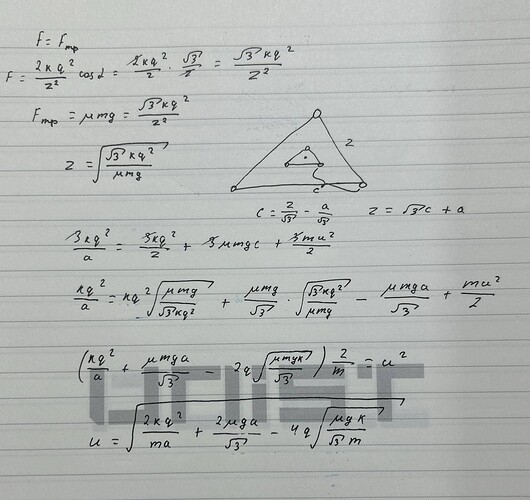 F = F_mp
F = 2kq²/z² cos α = 2kq²/z² · √3/2 = √3 kq²/z²
F_mp = μmg = √3 kq²/z²
z = √(√3 kq²/μmg)
z
c
c = z/√3 - a/√3    z = √3 c + a
3kq²/a = 3kq²/z + 3μmgc + 3mu²/2
kq²/a = kq² √(μmg/√3kq²) + μmg/√3 · √(√3kq²/μmg) - μmga/√3 + mu²/2
(kq²/a + μmga/√3 - 2q √(μmgk/√3)) 2/m = u²
u = √(2kq²/ma + 2μga/√3 - 4q √(μgk/√3 m))